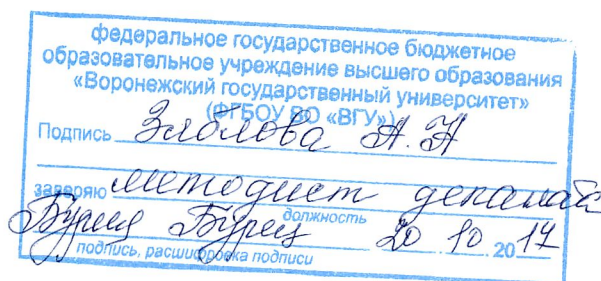 федеральное государственное бюджетное
образовательное учреждение высшего образования
«Воронежский государственный университет»
(ФГБОУ ВО «ВГУ»)
Подпись А. Н
заверяю методист деканата
должность
Бурец Бурец 20 10 2017
подпись, расшифровка подписи